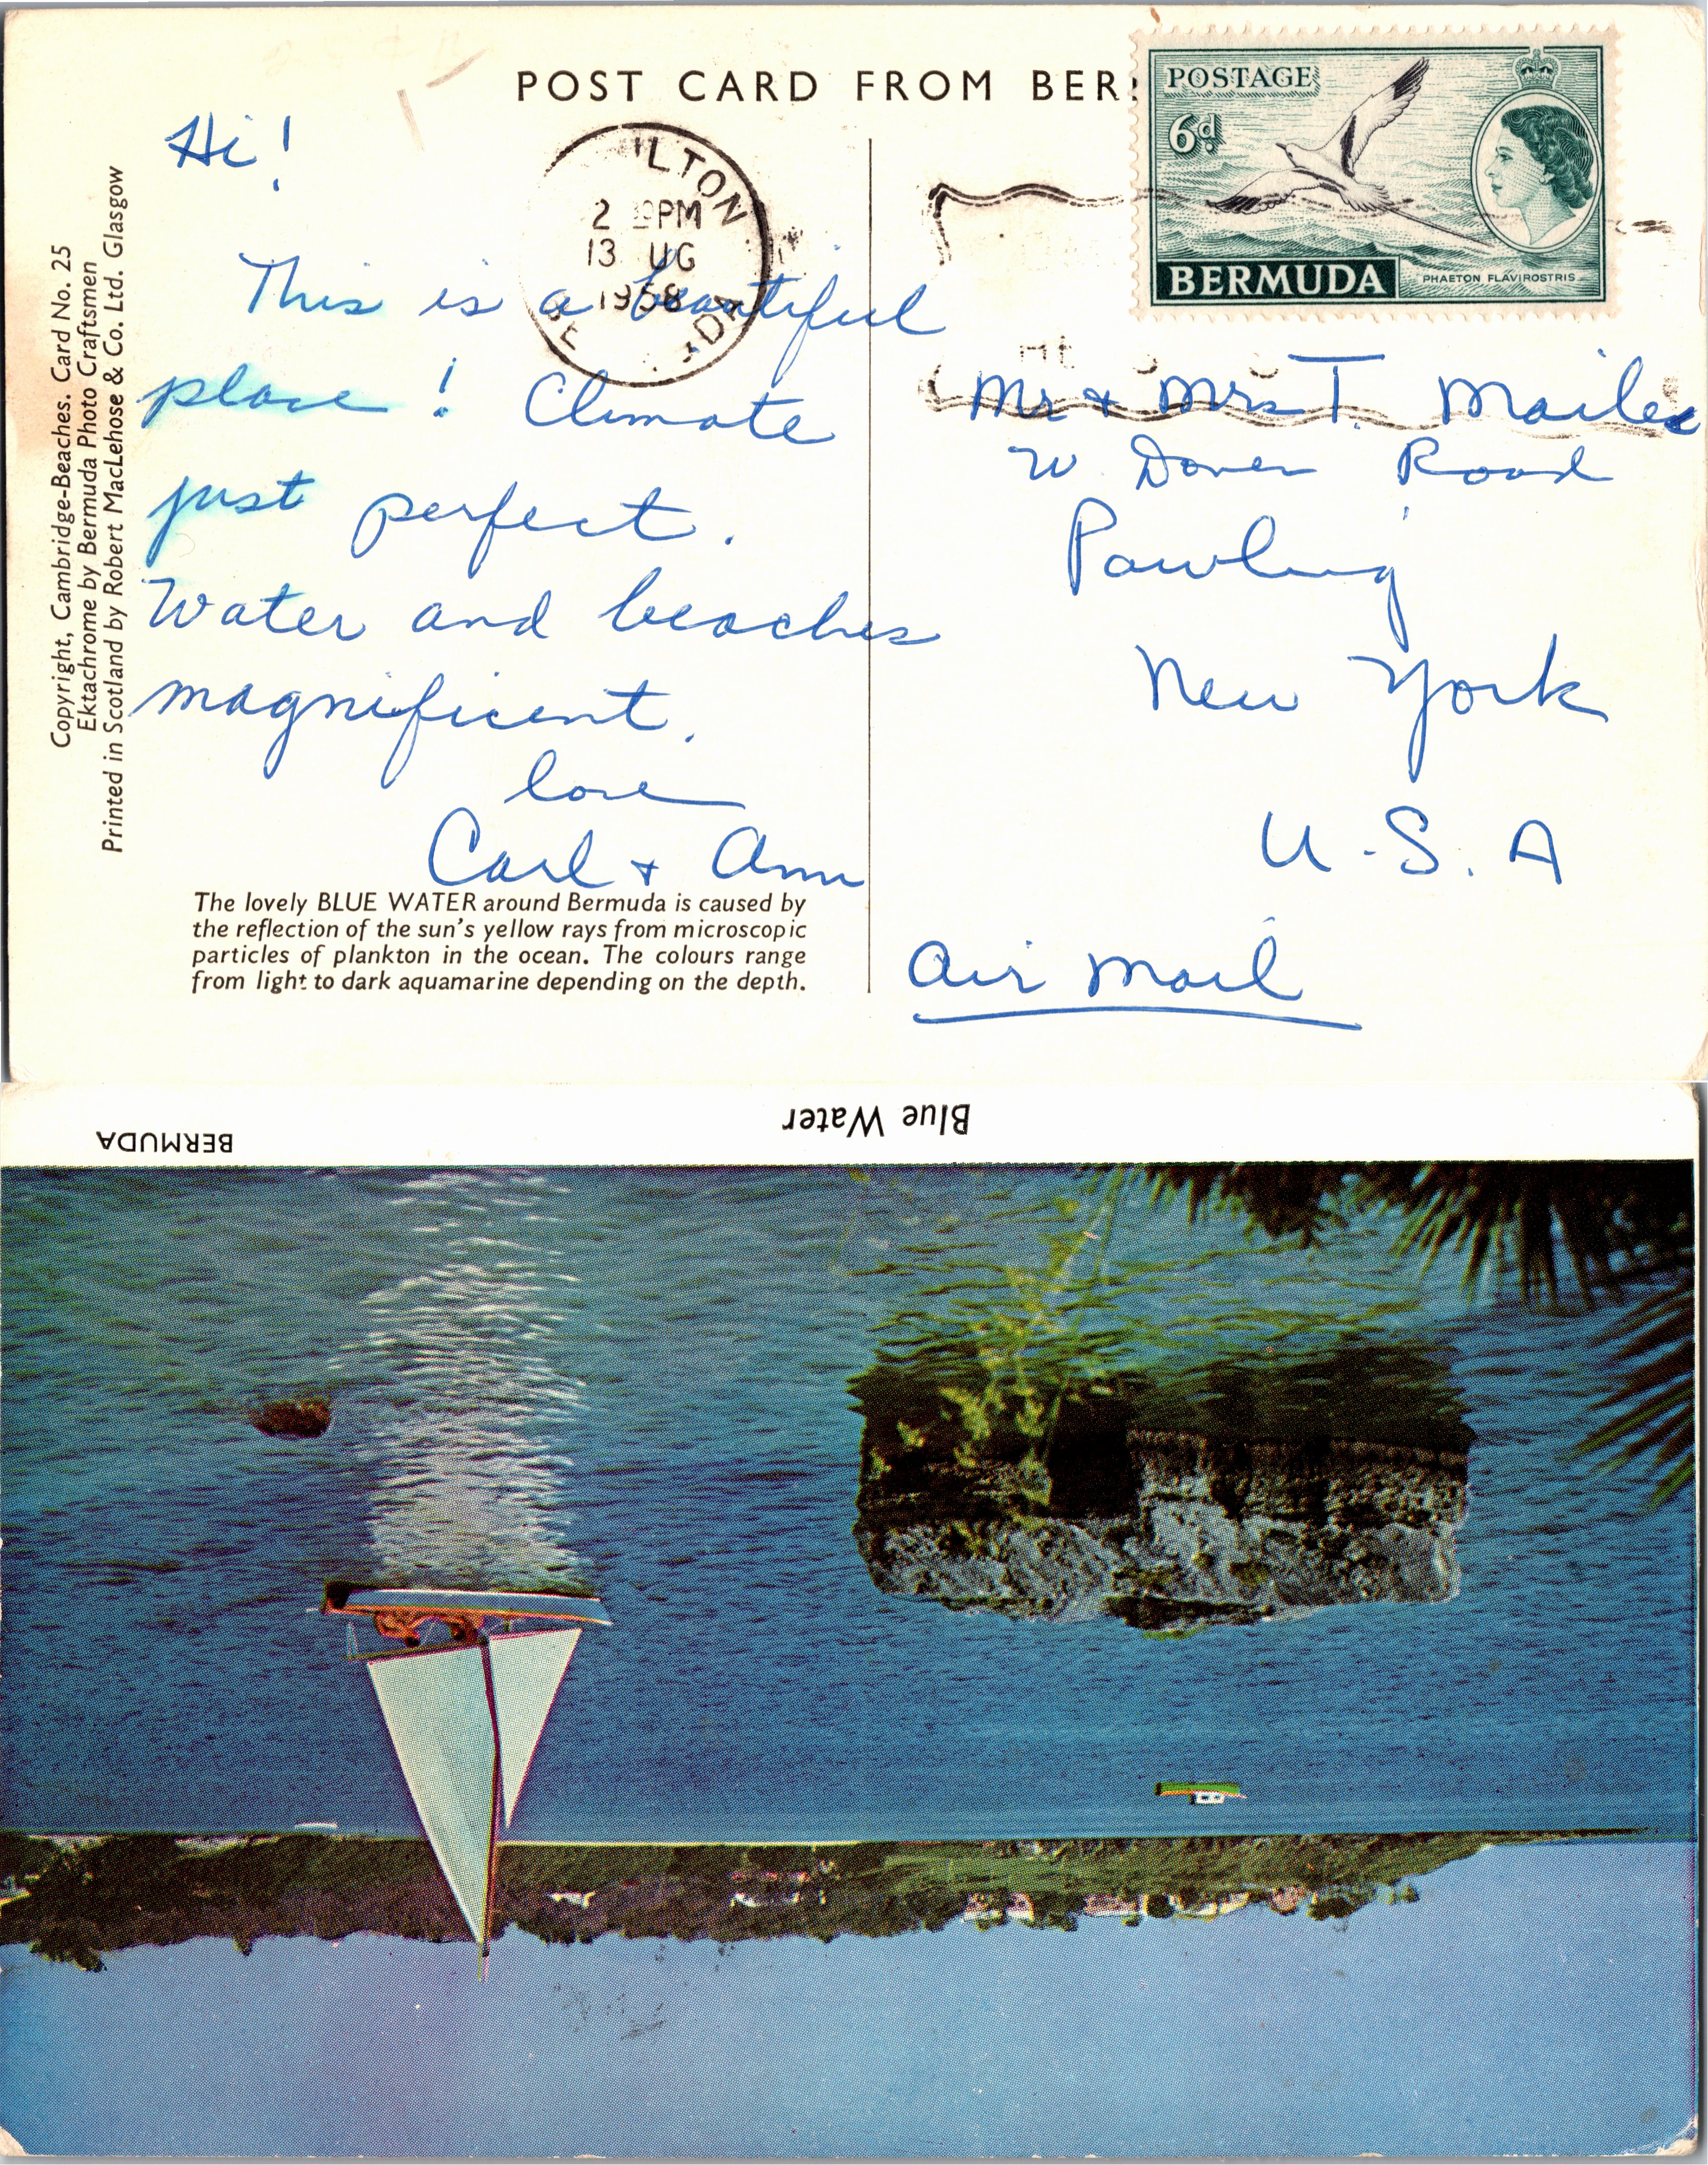 POST CARD FROM BER
POSTAGE
6d
BERMUDA
PHAETON FLAVIROSTRIS
ILTON
2 PM
13 UG
1958
BE DA
Hi!
This is a beautiful
place! Climate
just perfect.
Water and beaches
magnificent.
love
Carl + Ann
Mr + Mrs T.
W. Dover Road
Pawling
New York
U.S.A
Air Mail
Copyright, Cambridge-Beaches. Card No. 25
Ektachrome by Bermuda Photo Craftsmen
Printed in Scotland by Robert MacLehose & Co. Ltd. Glasgow
The lovely BLUE WATER around Bermuda is caused by
the reflection of the sun's yellow rays from microscopic
particles of plankton in the ocean. The colours range
from light to dark aquamarine depending on the depth.
Blue Water
BERMUDA